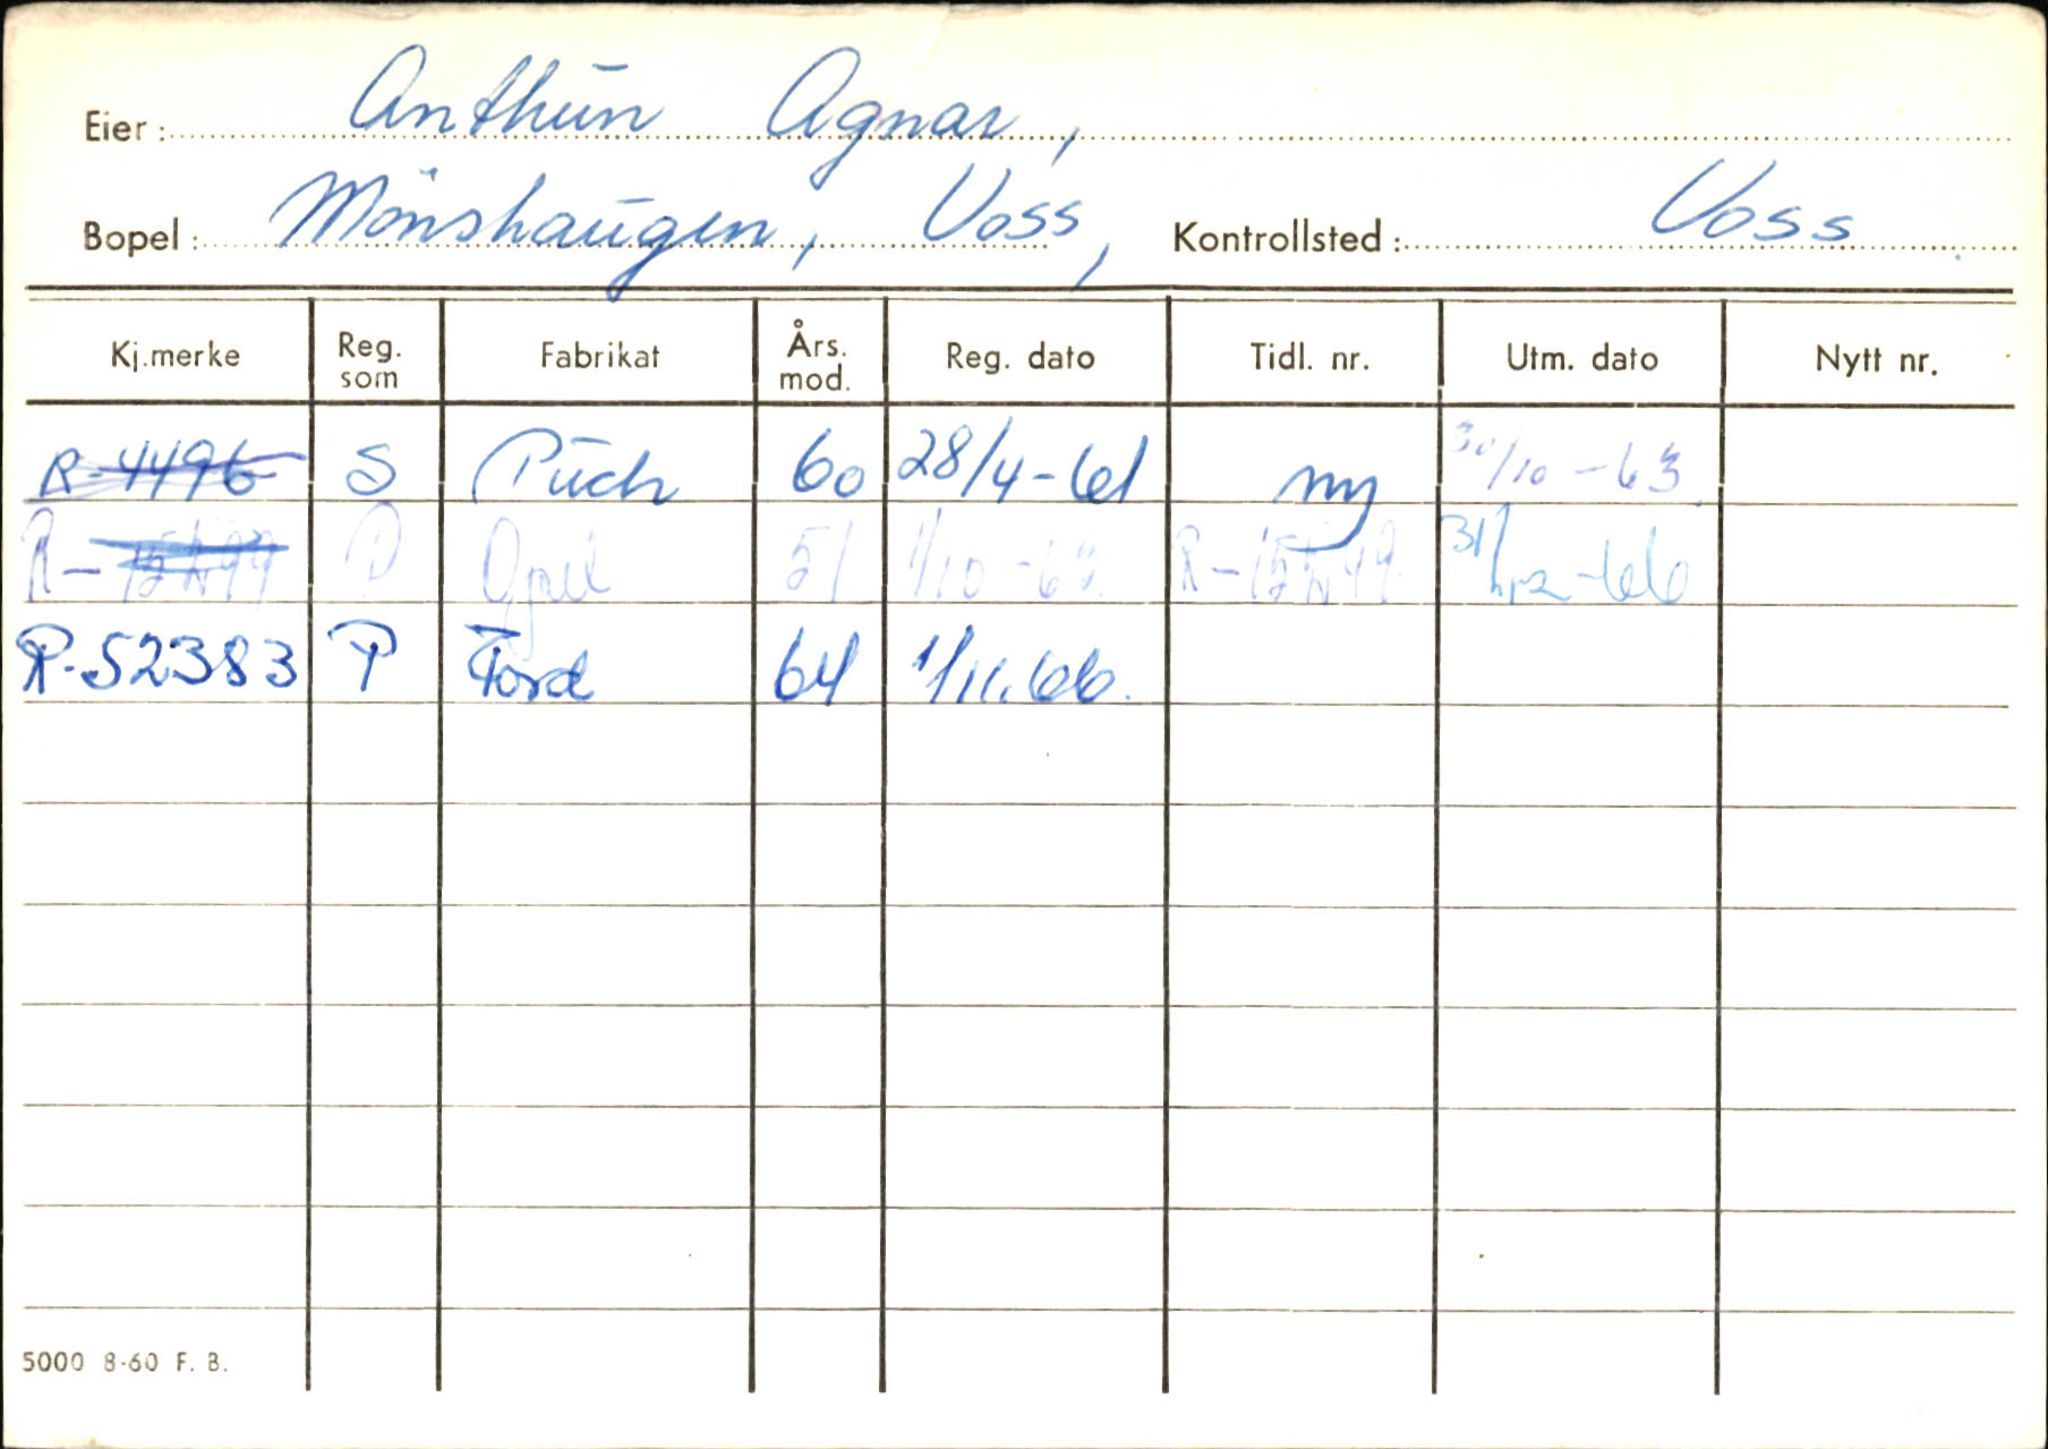 Eier: Anthun Agnar,
Bopel: Mönshaugen, Voss, Kontrollsted: Voss
Kj.merke Reg. som Fabrikat Års. mod. Reg. dato Tidl. nr. Utm. dato Nytt nr.
R-4496 S Puch 60 28/4-61 ny 30/10-63
R- P Opel 51 1/10-63 R- 31/12-66
R-52383 P Ford 64 1/11.66.
5000 8-60 F. B.